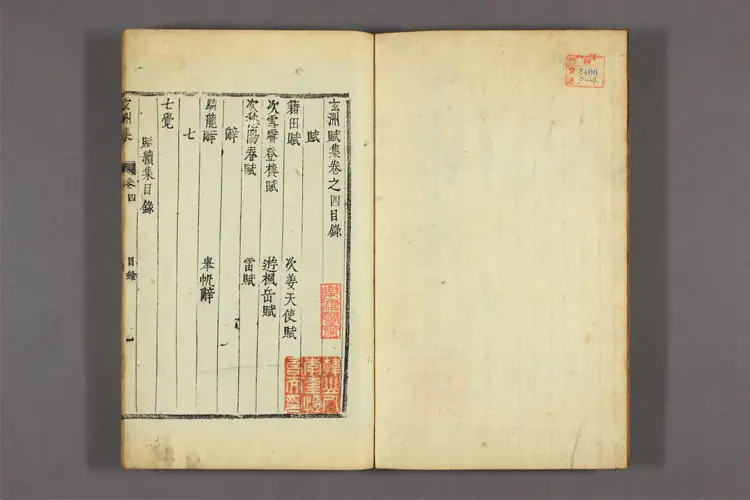 玄洲賦集卷之四目錄
賦
籍田賦 次姜天使賦
次雪齋登樓賦 遊楓岳賦
次愁陽春賦 雷賦
辭
驕龍辭 擧帆辭
七
七覺
賦續集目錄
玄洲集 卷四 目錄 一
2400